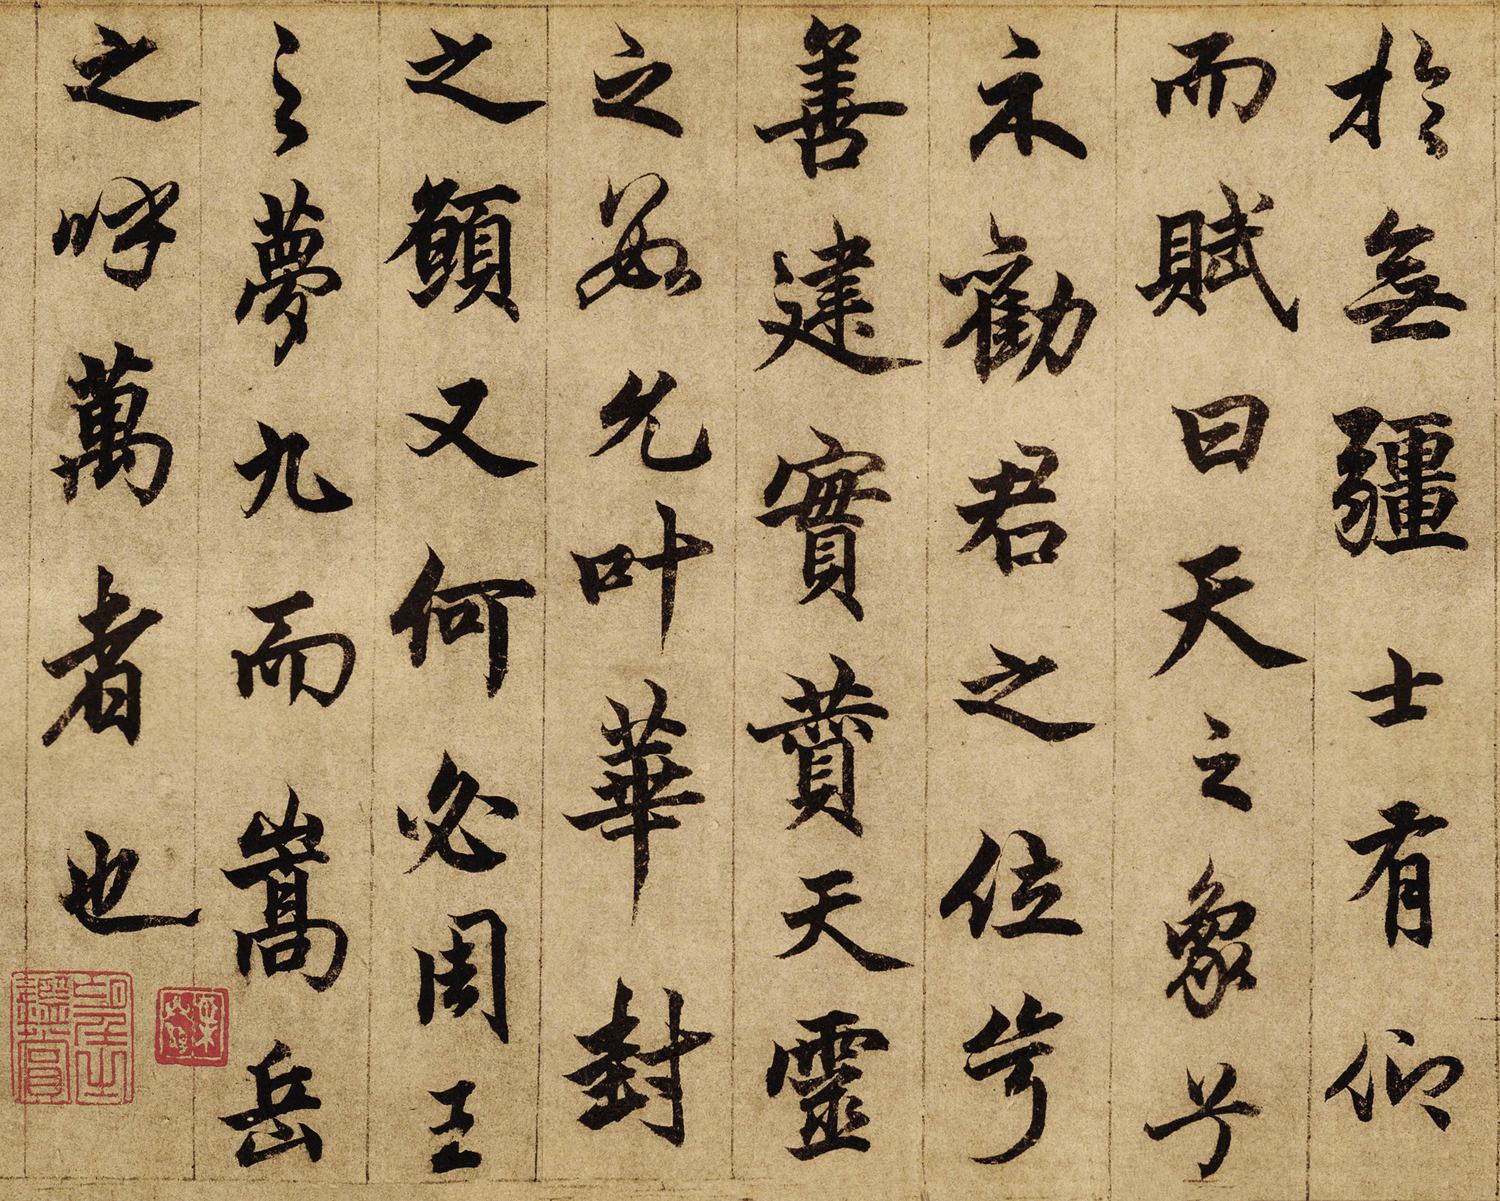 於無疆士有仰
而賦曰天之象兮
示勸君之位兮
善建實賁天靈
之數允叶華封
之願又何必周王
之夢九而嵩岳
之呼萬者也